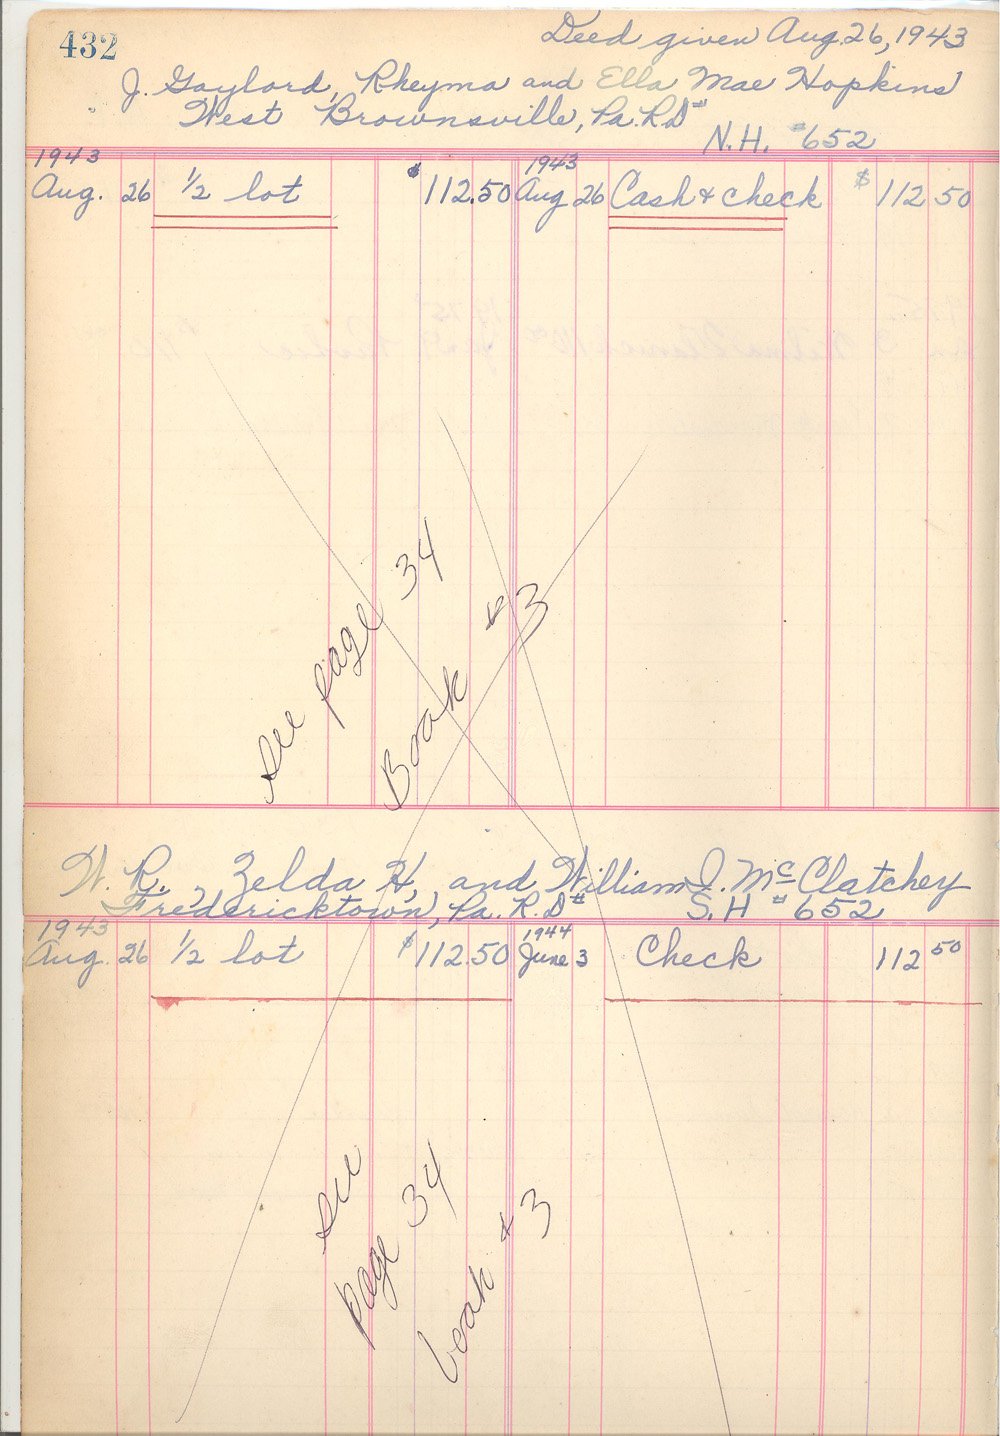 432
Deed given Aug. 26, 1943
J. Gaylord, Rheyma and Ella Mae Hopkins
West Brownsville, Pa. R.D#
N.H. #652
1943
Aug. 26 1/2 lot $112.50
1943
Aug 26 Cash & check $112 50
see page 34
Book #3
W. R., Zelda H, and William J. McClatchey
Fredericktown, Pa. R.D# S.H #652
1943
Aug. 26 1/2 lot $112.50
1944
June 3 Check 112 50
see
page 34
book #3